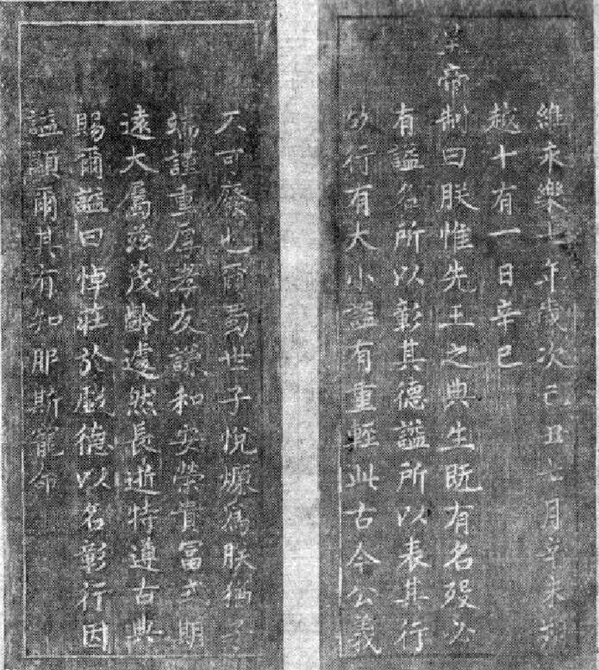 維永樂七年歲次己丑七月辛未朔
越十有一日辛巳
皇帝制曰朕惟先王之典生既有名歿必
有謚名所以彰其德謚所以表其行
行有大小謚有重輕此古今公義
不可廢也爾蜀世子悅燫爲朕猶子
端謹重厚孝友謙和安榮貴富式期
遠大屬茲茂齡遽然長逝特遵古典
賜爾謚曰悼莊於戲德以名彰行因
謚顯爾其有知服斯寵命